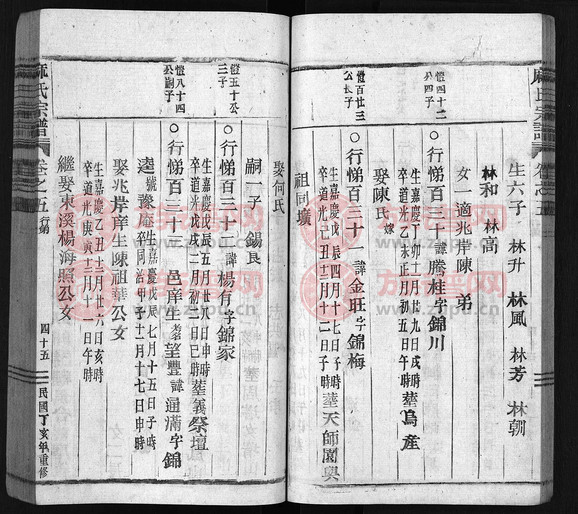 生六子 林升 林風 林芳 林朝
林和 林高
女一適兆岸陳 弟
愷四十二
公四子
○行悌百三十諱騰桂字錦川
生嘉慶丁卯十一月十九日戌時
卒道光乙未正月初五日午時 塟烏産
娶陳氏 嫁
愷百廿三
公長子
○行悌百三十一諱金旺字錦梅
生嘉慶戊辰四月十一日子時
卒道光戊子七月十七日子時 塟天師園與
祖同壙
娶何氏
嗣一子 錫良
愷五十公
三子
○行悌百三十二諱楊有字錦家
生嘉慶戊辰五月廿六日申時
卒道光戊戌二月初二日申時 塟義祭壇
愷八十四
公嗣子
○行悌百三十三 邑庠生 老 望豐諱通滿字錦
遠號豫庵 生嘉慶戊辰七月十五日子時
卒同治甲子十二月十七日申時
娶兆岸庠生陳祖華公女
生嘉慶乙丑十月廿六日亥時
卒道光庚寅十二月十一日午時
繼娶東溪楊海照公女
麻氏宗譜
卷之五 行弟
四十五
民國丁亥年重修
麻氏宗譜
卷之五
族譜網
www.zupu.cn